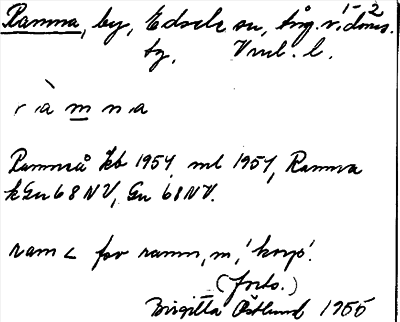 Ramna, by, Edsele sn, Ång. v:doms.
tg, Vnrl. l.
r à m n a
Ramnå Jkb 1954, ml 1954, Ramna
kGu 68 NV, Gu 68 NV.
ram < fsv ramn, m, 'korp'.
(forts.)
Birgitta Östlund 1955